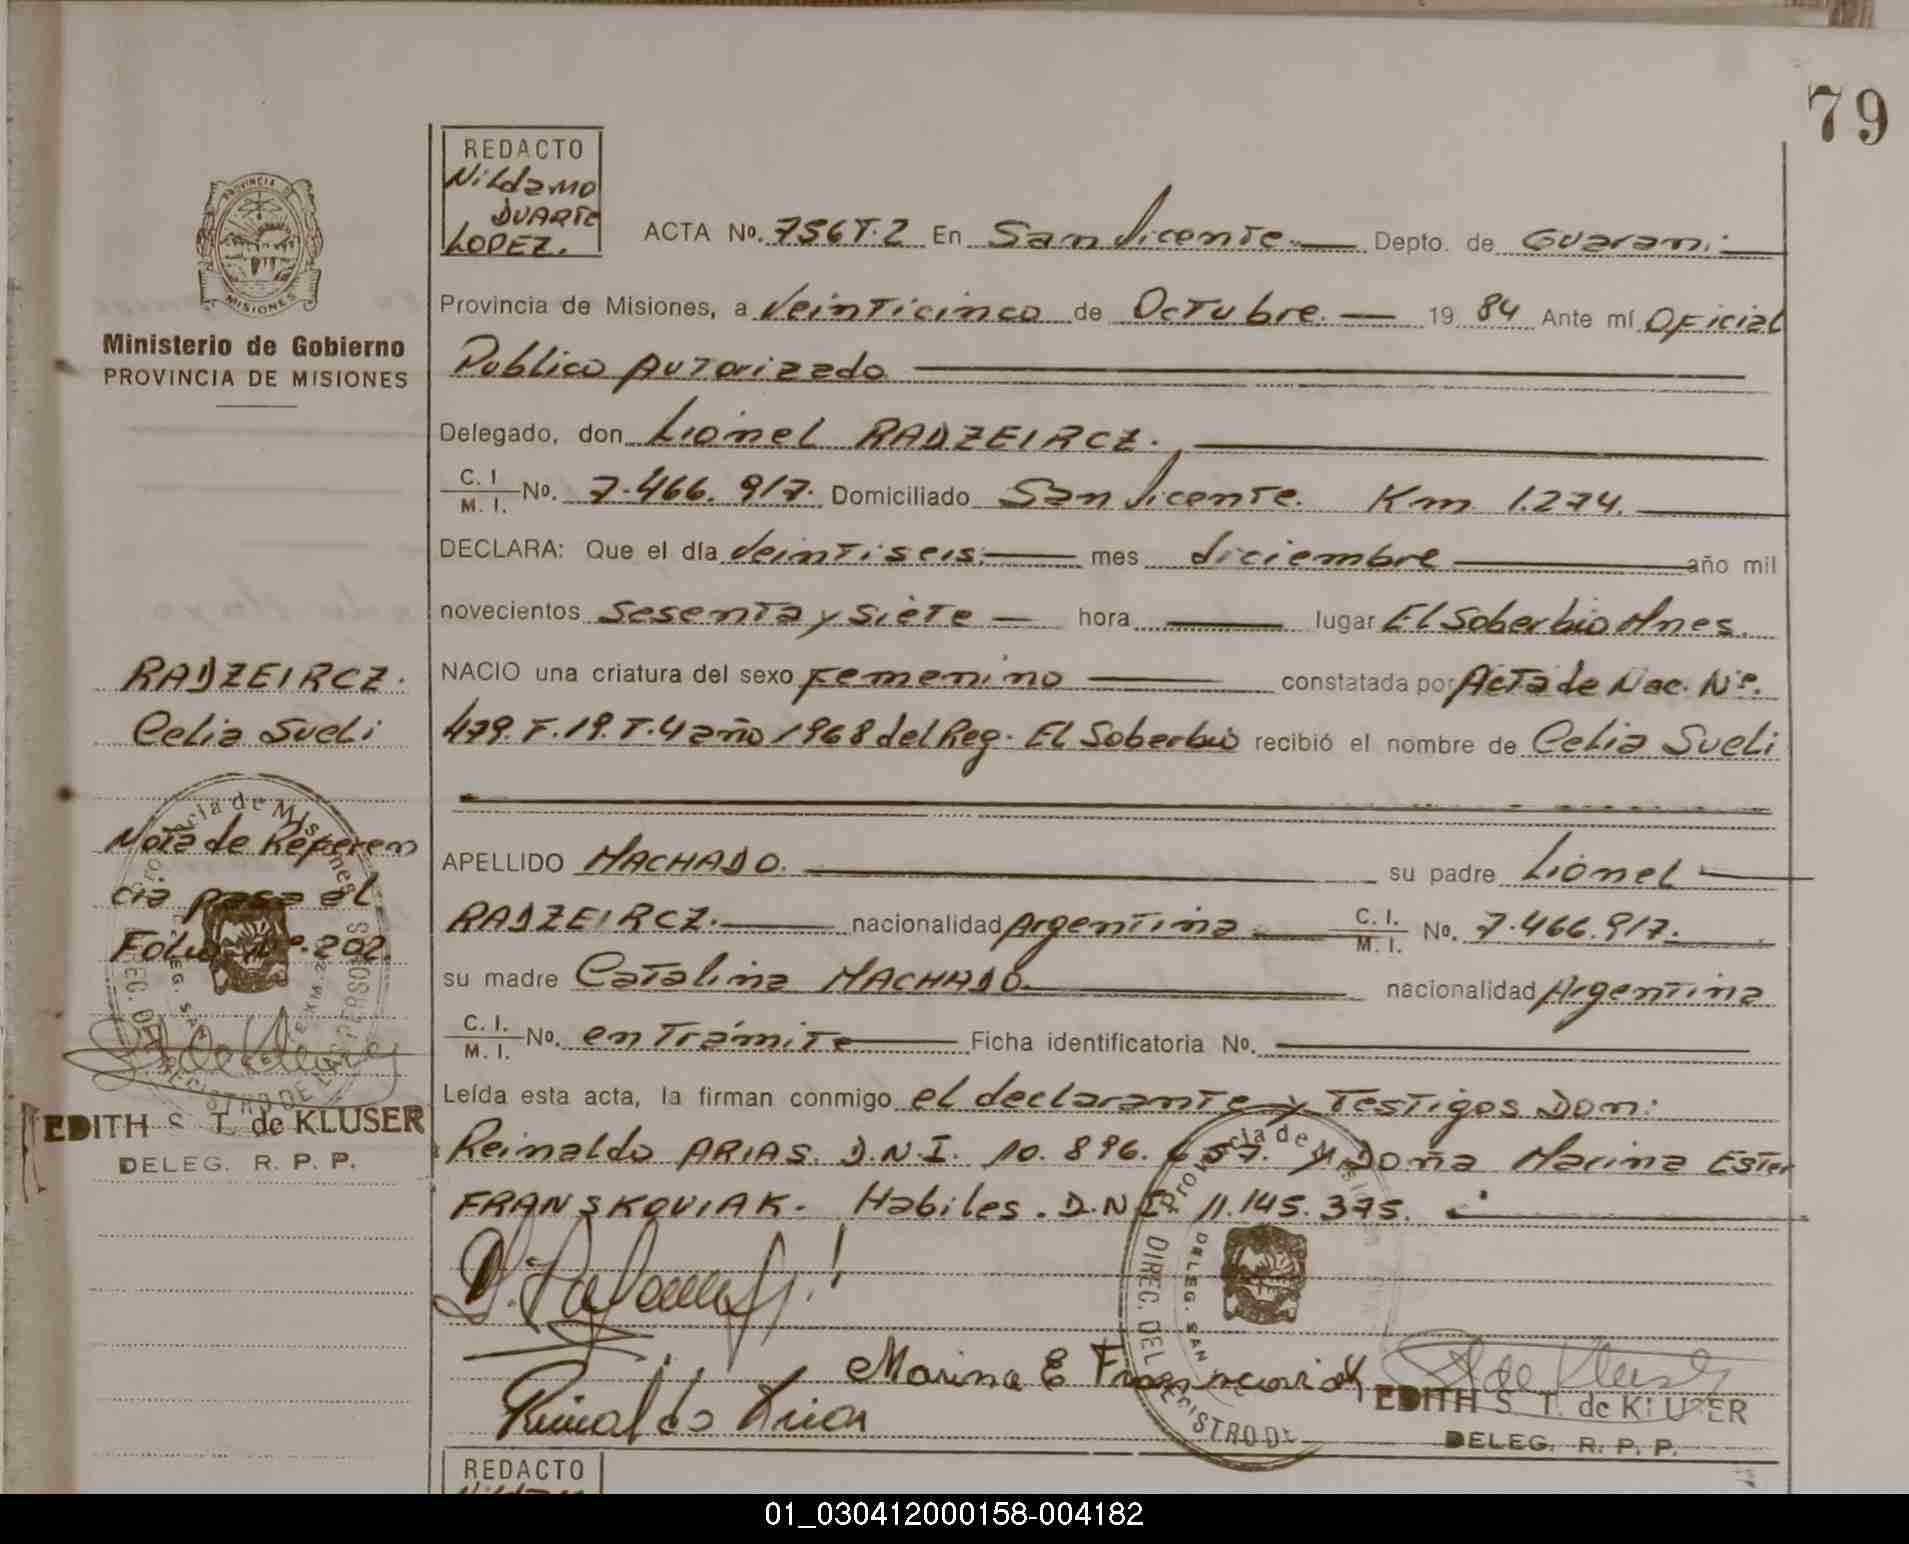 79
REDACTO
Nildamo
DUARTE
LOPEZ.
ACTA No. 756 T.2 En San Vicente Depto. de Guaraní
MISIONES
Ministerio de Gobierno
PROVINCIA DE MISIONES
Provincia de Misiones, a Veinticinco de Octubre. 19 84 Ante mí Oficial
Publico Autorizado
Delegado, don Lionel RADZEIRCZ.
C. I. / M. I. No. 7.466.917. Domiciliado San Vicente. Km 1.274.
DECLARA: Que el día Veintiseis mes diciembre año mil
novecientos sesenta y siete hora lugar El Soberbio Mnes.
NACIO una criatura del sexo Femenino constatada por Acta de Nac. Nº.
479. F.19. T.4 año 1968 del Reg. El Soberbio recibió el nombre de Celia Sueli
APELLIDO MACHADO. su padre Lionel
RADZEIRCZ. nacionalidad Argentina C. I. / M. I. No. 7.466.917.
su madre Catalina MACHADO. nacionalidad Argentina
C. I. / M. I. No. en Trámite Ficha identificatoria No.
Leída esta acta, la firman conmigo el declarante y Testigos Don:
Reinaldo ARIAS. D.N.I. 10.896.657. y Doña Marina Ester
FRANSKOVIAK. Habiles. D.N.I. 11.145.375.
RADZEIRCZ.
Celia Sueli
Nota de Referen
cia pasa al
Folio Nº. 202.
EDITH S. T. de KLUSER
DELEG. R. P. P.
Marina E
Reinaldo Arias
EDITH S. T. de KLUSER
DELEG. R. P. P.
REDACTO
01_030412000158-004182